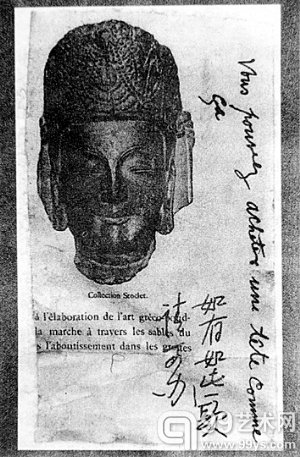 Vous pouvez acheter une tête comme
ça
Collection Stoclet.
à l'élaboration de l'art gréco-
la marche à travers les sables du
s l'aboutissement dans les
如有如此
99艺术网
www.99ys.com